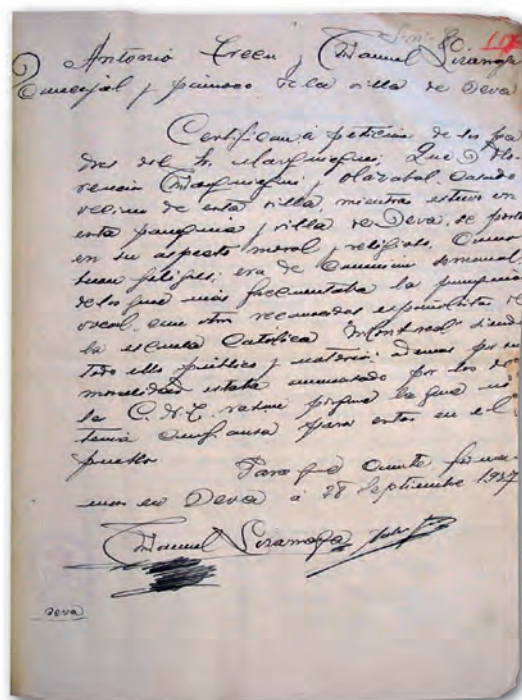 80.
Antonio Treen y Manuel Lizarraga
Concejal y párroco de la villa de Deva
Certifican a petición de los pa
dres del Sr. Que Flo
rencio y Olazabal, casado
vecino de esta villa, mientras estuvo en
esta parroquia y villa de Deva, se portó
en su aspecto moral y religioso, como
buen feligrés; era de comunión semanal,
de los que más frecuentaba la parroquia
vocal, con otros reconocidos españolistas de
la escuela Católica Montreal siendo
todo ello público y notorio; además por su
estaba amenazado por los de
la C. N. T. porque la que no
tenía confianza para estos en el
pueblo
Para que conste firma
mos en Deva a 28 Septiembre 1937
Manuel Lizarraga
Deva